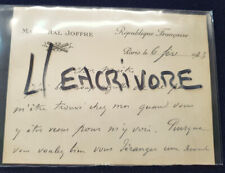 MARÉCHAL JOFFRE
République Française
Paris le 6 fév. 23
L'EACRIVORE
m'être trouvé chez moi quand vous
y êtes venu pour m'y voir. Puisque
vous voulez bien vous déranger une